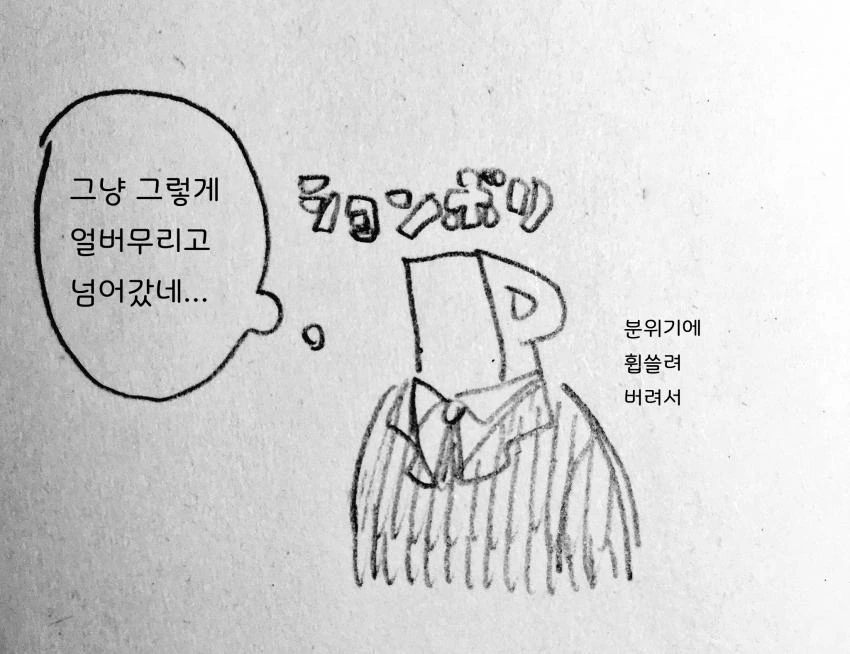 ションボリ
그냥 그렇게
얼버무리고
넘어갔네...
분위기에
휩쓸려
버려서